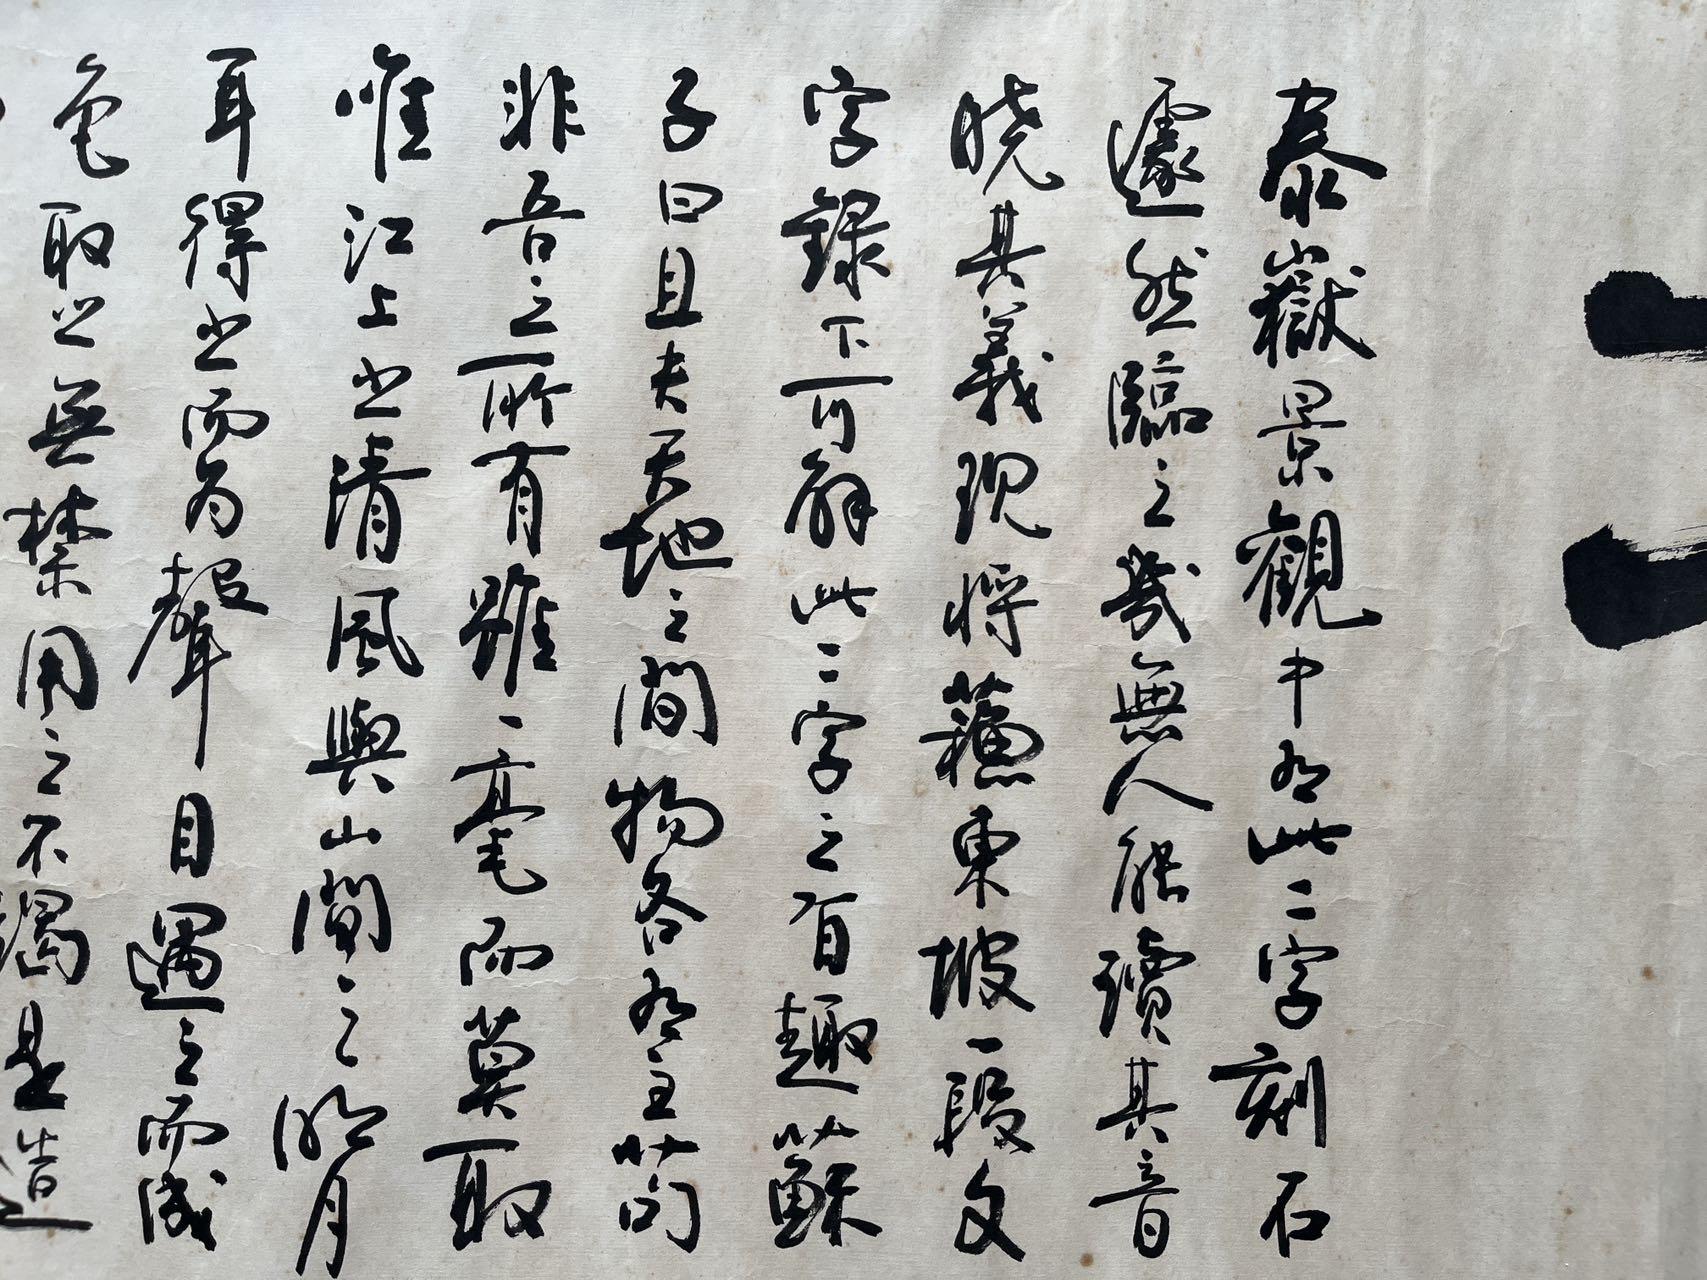 泰嶽景觀中有此二字刻石
遽然臨之幾無人能讀其音
曉其義現將蘇東坡一段文
字錄下可解此二字之旨趣蘇
子曰且夫天地之間物各有主苟
非吾之所有雖一毫而莫取
唯江上之清風與山間之明月
耳得之而為聲目遇之而成
色取之無禁用之不竭是造